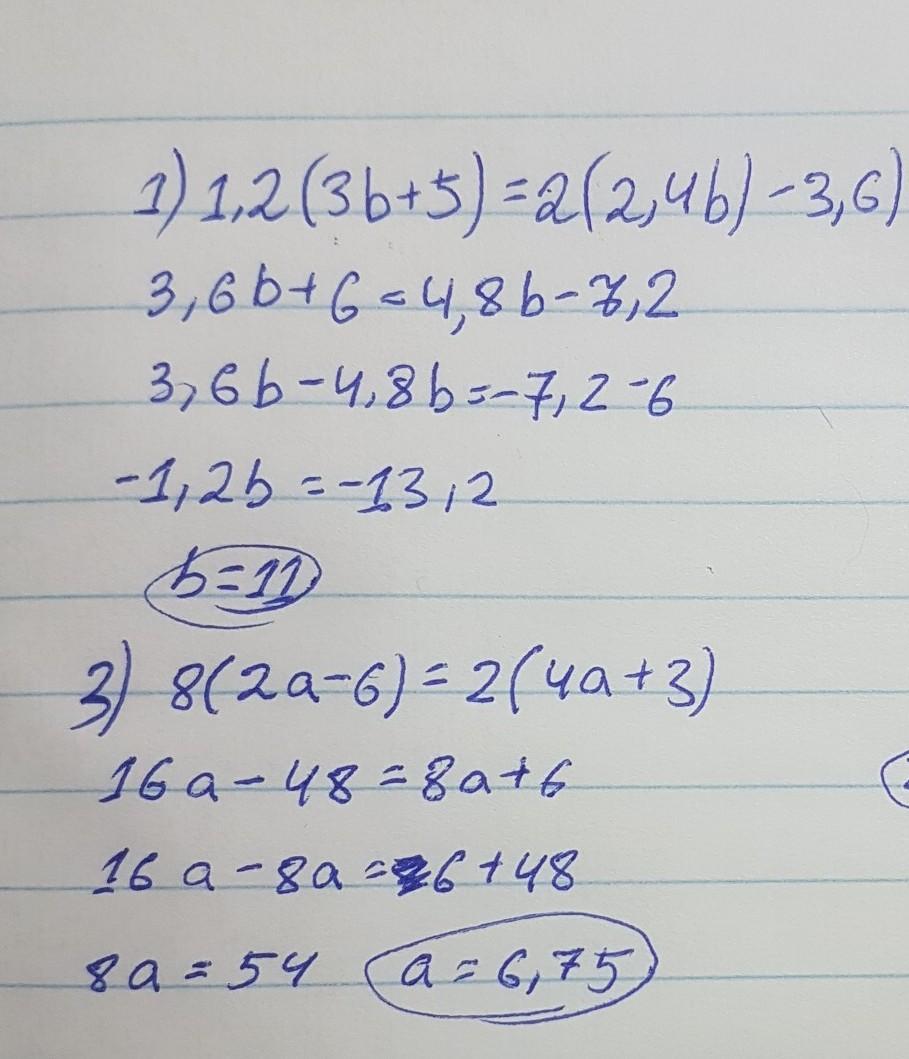 1) 1,2(3b+5)=2(2,4b)-3,6)
3,6b+6=4,8b-7,2
3,6b-4,8b=-7,2-6
-1,2b=-13,2
b=11
3) 8(2a-6)=2(4a+3)
16a-48=8a+6
16a-8a=6+48
8a=54 a=6,75